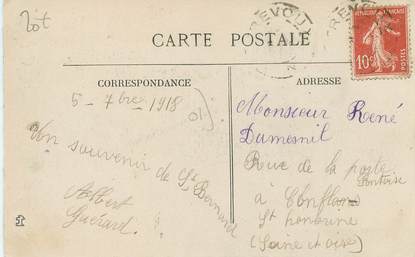 20t
TREVOUX
CARTE POSTALE
RÉPUBLIQUE FRANÇAISE
10c
CORRESPONDANCE
ADRESSE
5 - 7bre 1918
Un souvenir de St Bernard
Albert
Guérard.
Monsieur René
Dumesnil
Rue de la poste
Pontoise
à Conflans
St honorine
(Seine et oise)